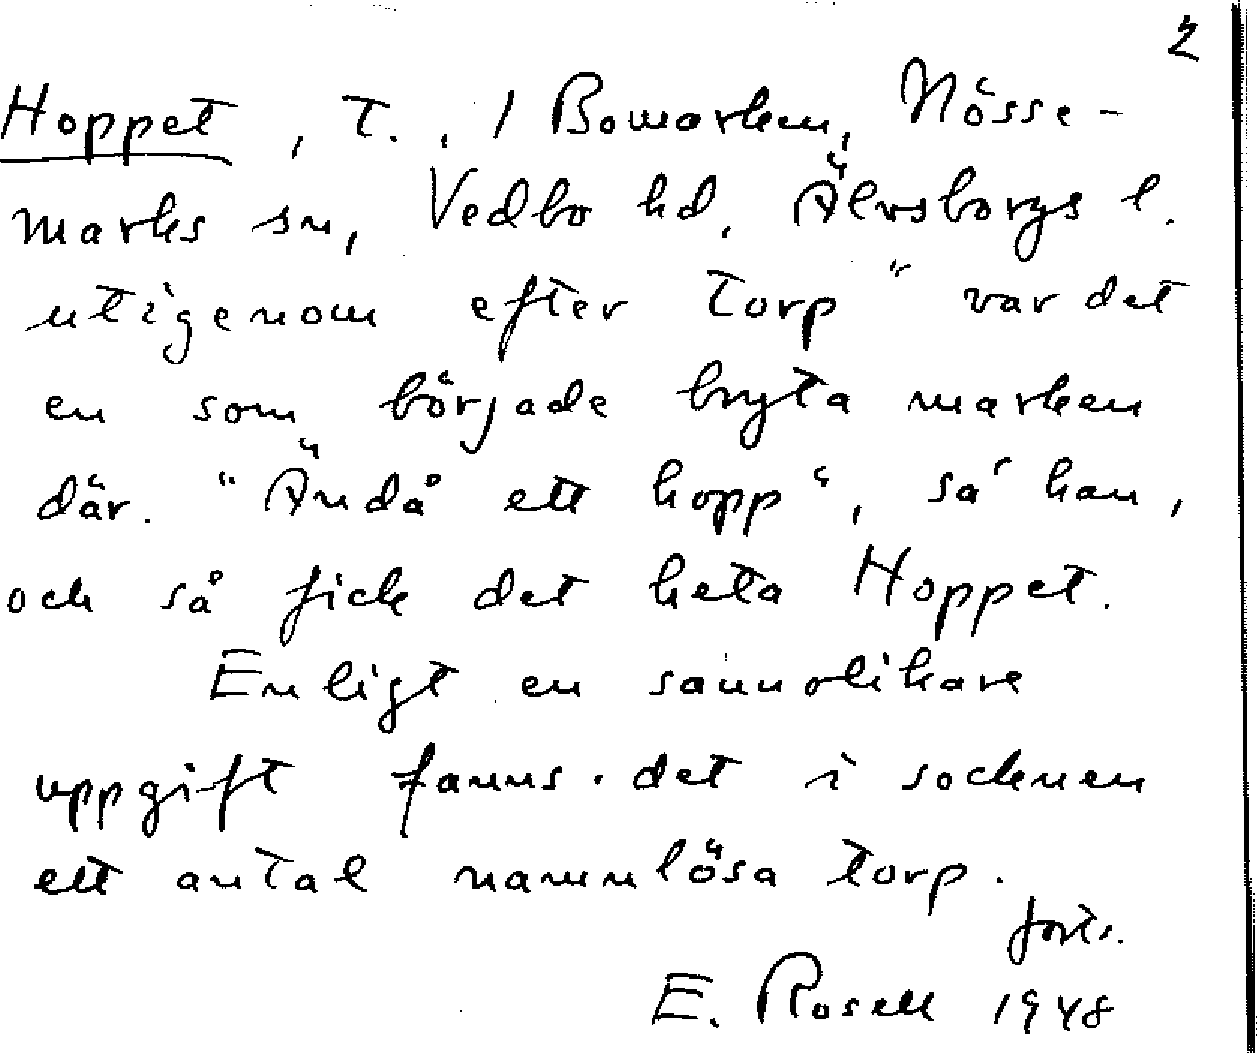 2
Hoppet, T., / Bowarken, Nösse-
marks sn, Vedbo hd, Älvsborgs l.
utigenom efter torp " var det
en som började bryta marken
där. "Ändå ett hopp", sa' han,
och så fick det heta Hoppet.
Enligt en sannolikare
uppgift fanns det i socknen
ett antal namnlösa torp.
forts.
E. Rosell 1948